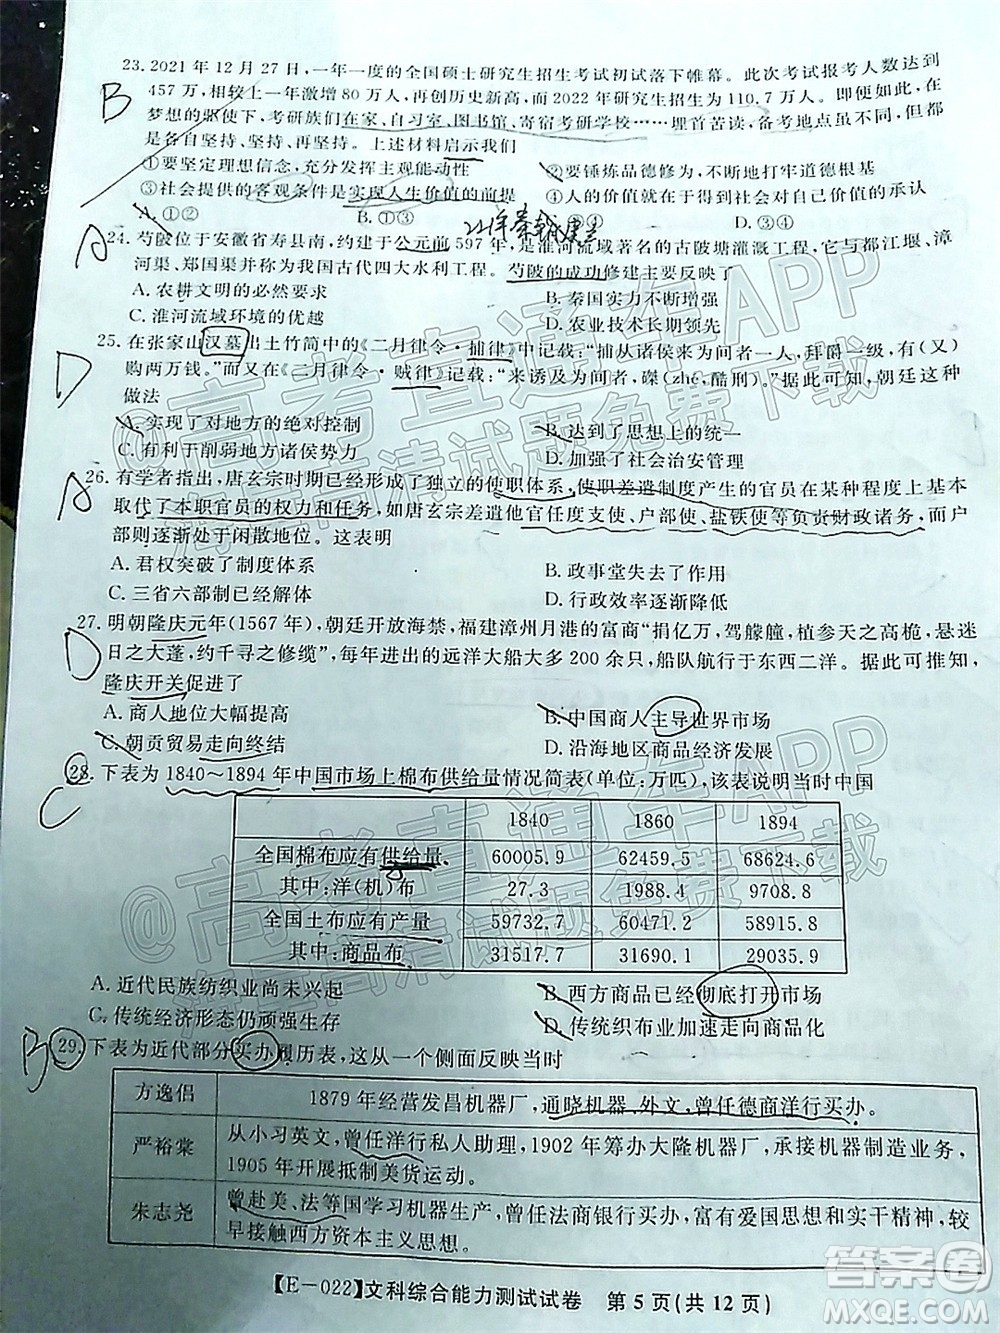 23. 2021 年 12 月 27 日，一年一度的全国硕士研究生招生考试初试落下帷幕。此次考试报考人数达到
457 万，相较上一年激增 80 万人，再创历史新高，而 2022 年研究生招生为 110.7 万人。即便如此，在
梦想的驱使下，考研族们在家、自习室、图书馆、寄宿考研学校……埋首苦读，备考地点虽有不同，但
是各自坚持、坚持、再坚持。上述材料启示我们
B
①要坚定理想信念，充分发挥主观能动性 ②要锤炼品德修为，不断地打牢道德根基
③社会提供的客观条件是实现人生价值的前提 ④人的价值在于社会对自己价值的承认
A. ①② B. ①③ C. ②④ D. ③④
24. 芍陂位于安徽省寿县南，约建于公元前 597 年，是淮河流域著名的古陂塘灌溉工程，它与都江堰、漳
河渠、郑国渠并称为我国古代四大水利工程。芍陂的成功修建主要反映了
A
A. 农耕文明的必然要求 B. 秦国实力不断增强
C. 淮河流域环境的优越 D. 农业技术长期领先
25. 在张家山汉墓出土竹简中的《二月律令·捕律》中记载：“捕从诸侯来为间者一人，拜爵一级，有（又）
购两万钱。”而又在《二月律令·贼律》记载：“来诱及为间者，磔（zhé，酷刑）。”据此可知，朝廷的
做法
D
A. 实现了对地方的绝对控制 B. 达到了思想上的统一
C. 有利于削弱地方诸侯势力 D. 加强了社会治安管理
26. 有学者指出，唐玄宗时期已经形成了独立的使职体系，使职差遣制度产生的官员在某种程度上基本
取代了本职官员的权力和任务，如唐玄宗差遣他官任度支使、户部使、盐铁使等负责财政诸务，而户
部则逐渐处于闲散地位。这表明
A
A. 君权突破了制度限制 B. 政事堂失去了作用
C. 三省六部制已经解体 D. 行政效率逐渐降低
27. 明朝隆庆元年（1567 年），朝廷开放海禁，福建漳州月港的富商“捐亿万，驾艨艟，植参天之高桅，悬迷
日之大蓬，约千寻之修缆”，每年进出的远洋大船大多 200 余只，船队航行于东西二洋。据此可推知，
隆庆开关促进了
D
A. 商人地位大幅提高 B. 中国商人主导世界市场
C. 朝贡贸易走向终结 D. 沿海地区商品经济发展
28. 下表为 1840～1894 年中国市场上棉布供给量情况简表（单位：万匹），该表说明当时中国
C
1840 1860 1894
全国棉布应有供给量 60005.9 62459.5 68624.6
其中：洋（机）布 27.3 1988.4 9708.8
全国土布应有产量 59732.7 60471.2 58915.8
其中：商品布 31517.7 31690.1 29035.9
A. 近代民族纺织业尚未兴起 B. 西方商品已经彻底打开市场
C. 传统经济形态仍顽强生存 D. 传统织布业加速走向商品化
29. 下表为近代部分买办履历表，这从一个侧面反映当时
B
方逸侣 1879 年经营发昌机器厂，通晓机器、外文，曾任德商洋行买办。
严裕棠 从小习英文，曾任洋行私人助理，1902 年筹办大隆机器厂，承接机器制造业务，
1905 年开展抵制美货运动。
朱志尧 曾赴美、法等国学习机器生产，曾任法商银行买办，富有爱国思想和实干精神，较
早接触西方资本主义思想。
【E－022】文科综合能力测试试卷 第 5 页（共 12 页）
@高考直通车APP
海量高清试题免费下载
@高考直通车APP
海量高清试题免费下载
答案圈
MXQE.COM